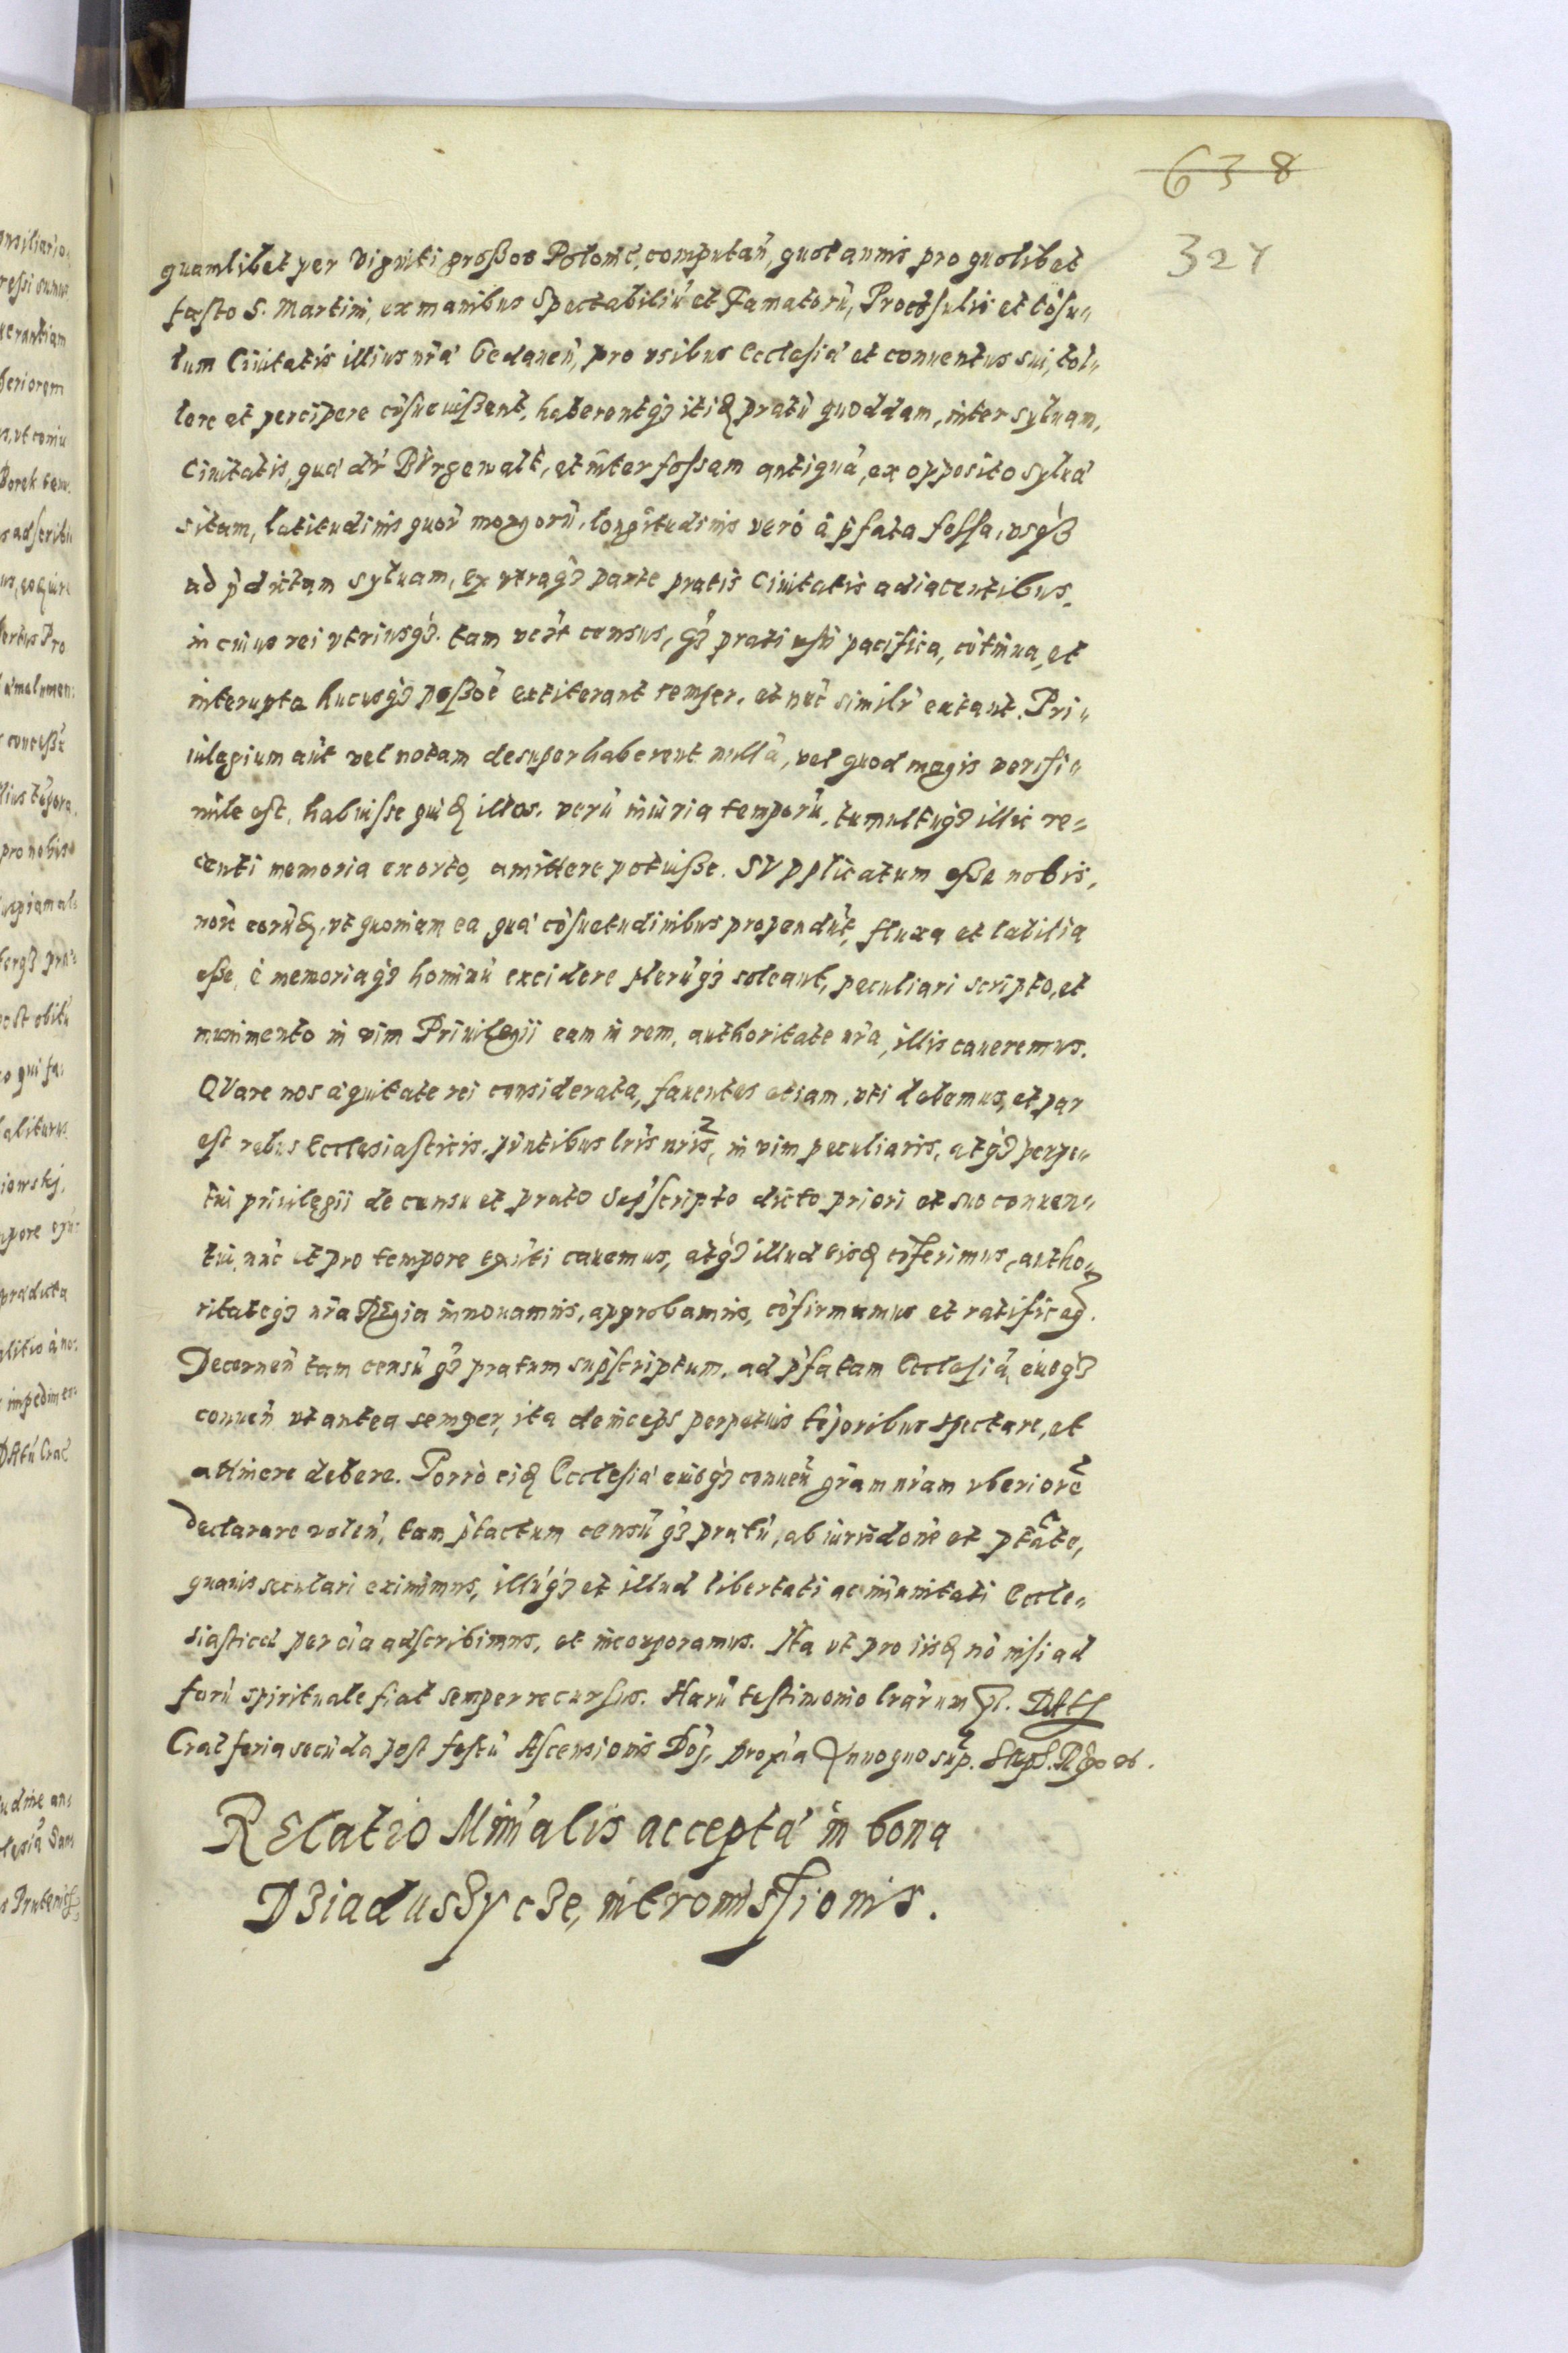 638
327
quamlibet per viginti großos Polonic̃, computañ, quotannis pro quolibet
festo S. Martini, ex manibus Spectabiliũ et Famatorũ, Procõsulis et Cõsu„
lum Ciuitatis illius nr̃a Gedaneñ, pro vsibus Ecclesiæ et conuentus sui, tol„
lere et percipere cõsueuißent, haberentq́ȝ itiđ pratũ quoddam, inter syluam,
Ciuitatis, quæ dr̃ Bürgerwalt, et inter foßam antiquã, ex opposito syluæ
sitam, latitudinis quor̃ morgorũ, longitudinis verò à p̃fata fossa, vsq́ȝ
ad p̃dictam syluam, ex vtraq́ȝ parte pratis Ciuitatis adiacentibus.
in cuius rei vtriusq́ȝ. tam census, q̃ȝ prati usu pacifica, cõtinua, et
interupta hucusq́ȝ poßoẽ extiterant semper, et nũc similr̃ extant. Pri„
uilegium aũt vel notam desuper haberent nullã, vel quod magis verisi„
mile est, habuisse quiđ illos. verũ iniuria temporũ, tumultuq́ȝ illic re„
centi memoria exorto, amittere potuiße. SVpplicatum eße nobis,
noĩe eorũđ, vt quoniam ea quæ cõsuetudinibus propendẽt, fluxa et labilia
eße, è memoriaq́ȝ hominũ excidere plerũq́ȝ soleant, peculiari scripto, et
munimento in vim Priuilegii eam in rem, authoritate nr̃a, illis caueremus.
QVare nos æquitate rei considerata, fauentes etiam, vti debemus, et par
est rebus Ecclesiasticis, pñtibus lr̃is nr̃is, in vim peculiaris, atq́ȝ perpe„
tui priuilegii de censu et prato sup̃scripto dicto priori et suo conuen„
tui, nũc et pro tempore exñti cauemus, atq́ȝ illud eisđ cõferimus, autho„
ritateq́ȝ nr̃a Regia innouamus, approbamus, cõfirmamus et ratificaꝯ.
Decerneñ tam censũ q̃ȝ pratum sup̃scriptum, ad p̃fatam Ecclesiã, eiusq́ȝ
conueñ vt antea semper, ita deinceps perpetuis tẽporibus spectare, et
attinere debere. Porrò eiđ Ecclesiæ eiusq́ȝ conueñ gr̃am nr̃am vberiorẽ
declarare voleñ, tam p̃tactum censũ q̃ȝ pratũ, ab iurisdoñe et ptãte,
quauis seculari eximimus, illũq́ȝ et illud libertati ac im̃unitati Eccle„
siasticæ per oĩa adscribimus, et incorporamus. Ita vt pro iisđ nõ nisi ad
forũ spirituale fiat semper recursus. Harũ testimonio lr̃arum ꝛc. Datꝭ
Crac̃ feria secũda post festũ Ascensionis Doĩ, proxĩa Anno quo sup̃. Steph. Rex ꝛc.
RElatio Min̄alis acceptæ in bona
Dȝiadusȝycȝe, intromissionis.